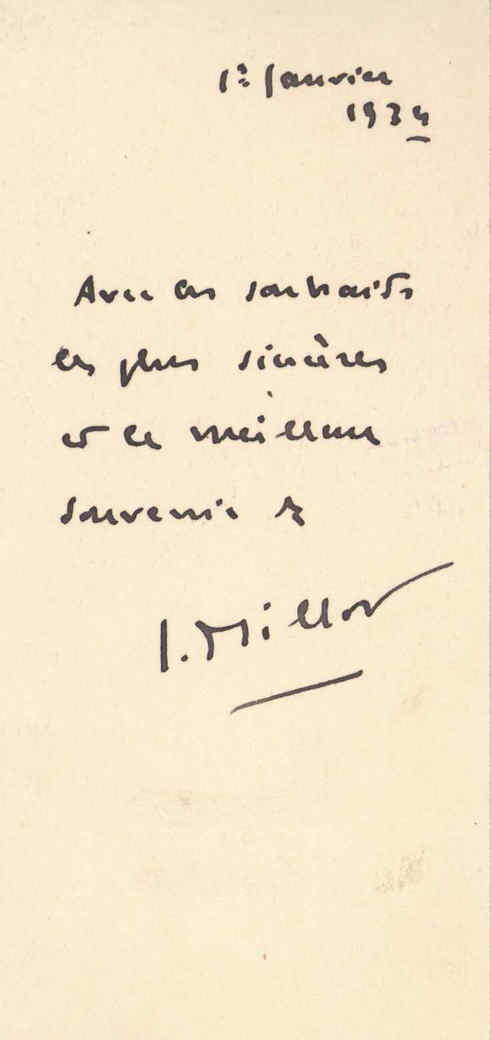 1er Janvier
1934
Avec les souhaits
les plus sincères
et le meilleur
souvenir de
J. Millot